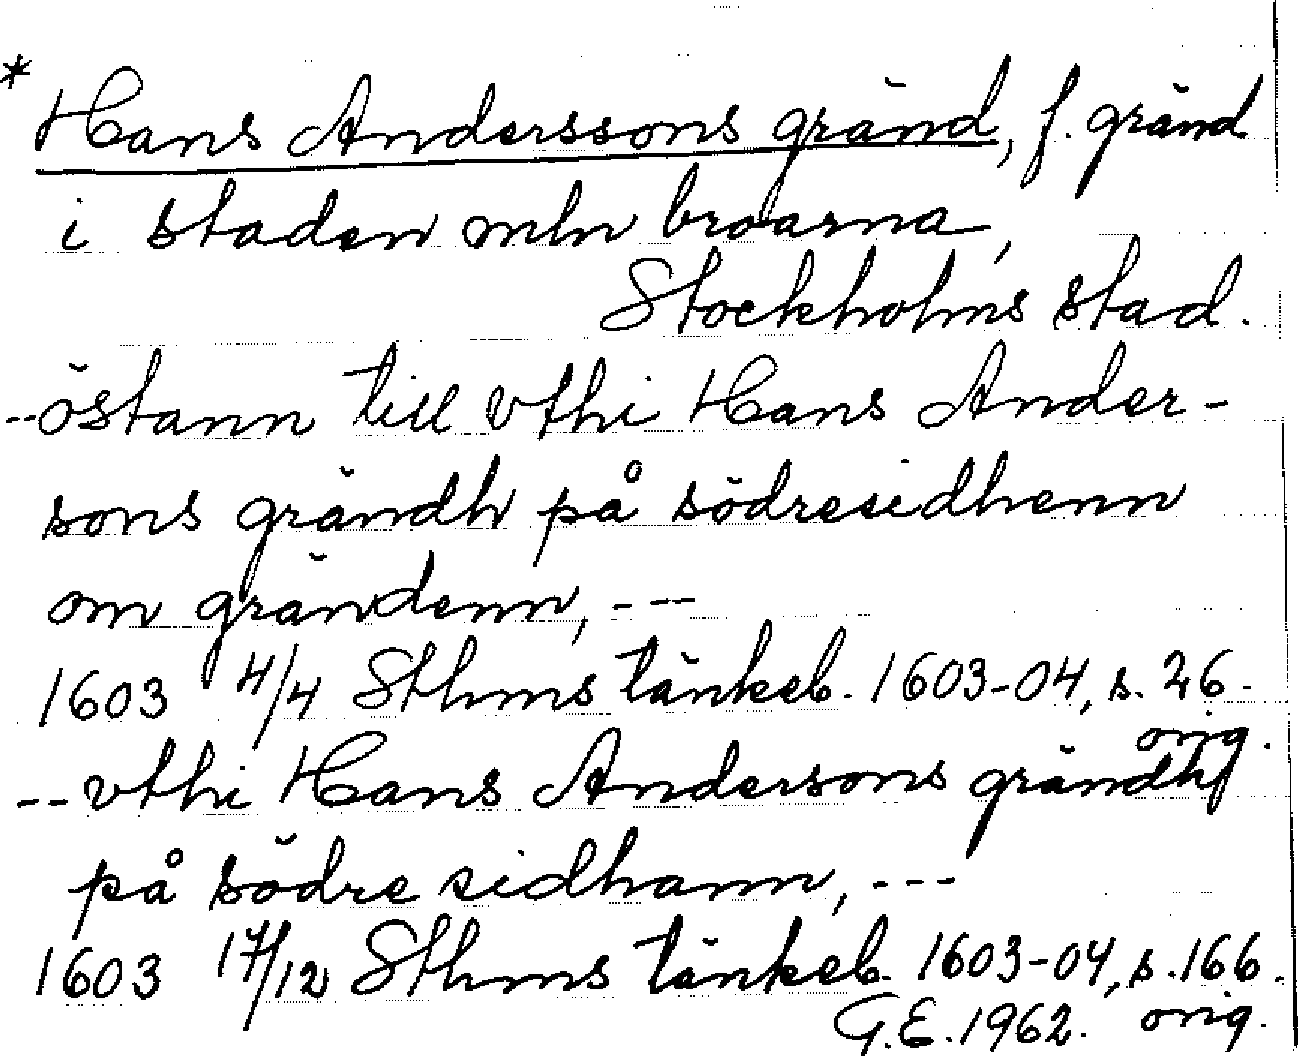 * Hans Anderssons gränd, f. gränd
i staden mln broarna,
Stockholms stad.
--östann till vthi Hans Ander-
sons grändh på södresidhenn
om grändenn, ---
1603 4/4 Sthms tänkeb. 1603-04, s. 26.
orig.
-- vthi Hans Andersons grändh
på södre sidhann, ---
1603 17/12 Sthms tänkeb. 1603-04, s. 166.
G.E. 1962. orig.